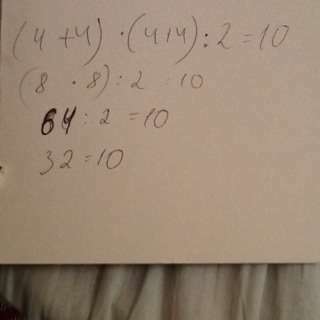 (4+4)·(4+4):2=10
(8·8):2=10
64:2=10
32=10